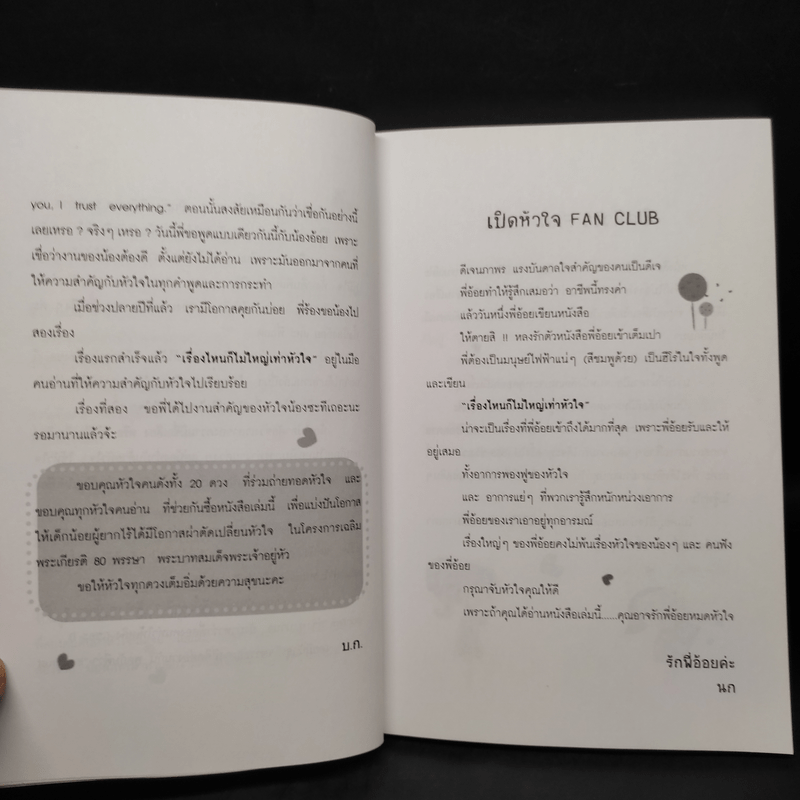 you, I trust everything." ตอนนั้นสงสัยเหมือนกันว่าเชื่อกันอย่างนี้
เลยเหรอ ? จริงๆ เหรอ ? วันนี้พี่ขอพูดแบบเดียวกันนี้กับน้องอ้อย เพราะ
เชื่อว่างานของน้องต้องดี ตั้งแต่ยังไม่ได้อ่าน เพราะมันออกมาจากคนที่
ให้ความสำคัญกับหัวใจในทุกคำพูดและการกระทำ
เมื่อช่วงปลายปีที่แล้ว เรามีโอกาสคุยกันบ่อย พี่ร้องขอน้องไป
สองเรื่อง
เรื่องแรกสำเร็จแล้ว "เรื่องไหนก็ไม่ใหญ่เท่าหัวใจ" อยู่ในมือ
คนอ่านที่ให้ความสำคัญกับหัวใจไปเรียบร้อย
เรื่องที่สอง ขอพี่ได้ไปงานสำคัญของหัวใจน้องซะทีเถอะนะ
รอมานานแล้วจ้ะ
ขอบคุณหัวใจคนดังทั้ง 20 ดวง ที่ร่วมถ่ายทอดหัวใจ และ
ขอบคุณทุกหัวใจคนอ่าน ที่ช่วยกันซื้อหนังสือเล่มนี้ เพื่อแบ่งปันโอกาส
ให้เด็กน้อยผู้ยากไร้ได้มีโอกาสผ่าตัดเปลี่ยนหัวใจ ในโครงการเฉลิม
พระเกียรติ 80 พรรษา พระบาทสมเด็จพระเจ้าอยู่หัว
ขอให้หัวใจทุกดวงเต็มอิ่มด้วยความสุขนะคะ
บ.ก.
เปิดหัวใจ FAN CLUB
ดีเจนภาพร แรงบันดาลใจสำคัญของคนเป็นดีเจ
พี่อ้อยทำให้รู้สึกเสมอว่า อาชีพนี้ทรงค่า
แล้ววันหนึ่งพี่อ้อยเขียนหนังสือ
ให้ตายสิ !! หลงรักตัวหนังสือพี่อ้อยเข้าเต็มเปา
พี่ต้องเป็นมนุษย์ไฟฟ้าแน่ๆ (สีชมพูด้วย) เป็นฮีโร่ในใจทั้งพูด
และเขียน
"เรื่องไหนก็ไม่ใหญ่เท่าหัวใจ"
น่าจะเป็นเรื่องที่พี่อ้อยเข้าถึงได้มากที่สุด เพราะพี่อ้อยรับและให้
อยู่เสมอ
ทั้งอาการพองฟูของหัวใจ
และ อาการแย่ๆ ที่พวกเรารู้สึกหนักหน่วงเอาการ
พี่อ้อยของเราเอาอยู่ทุกอารมณ์
เรื่องใหญ่ๆ ของพี่อ้อยคงไม่พ้นเรื่องหัวใจของน้องๆ และ คนฟัง
ของพี่อ้อย
กรุณาจับหัวใจคุณให้ดี
เพราะถ้าคุณได้อ่านหนังสือเล่มนี้......คุณอาจรักพี่อ้อยหมดหัวใจ
รักพี่อ้อยค่ะ
นก